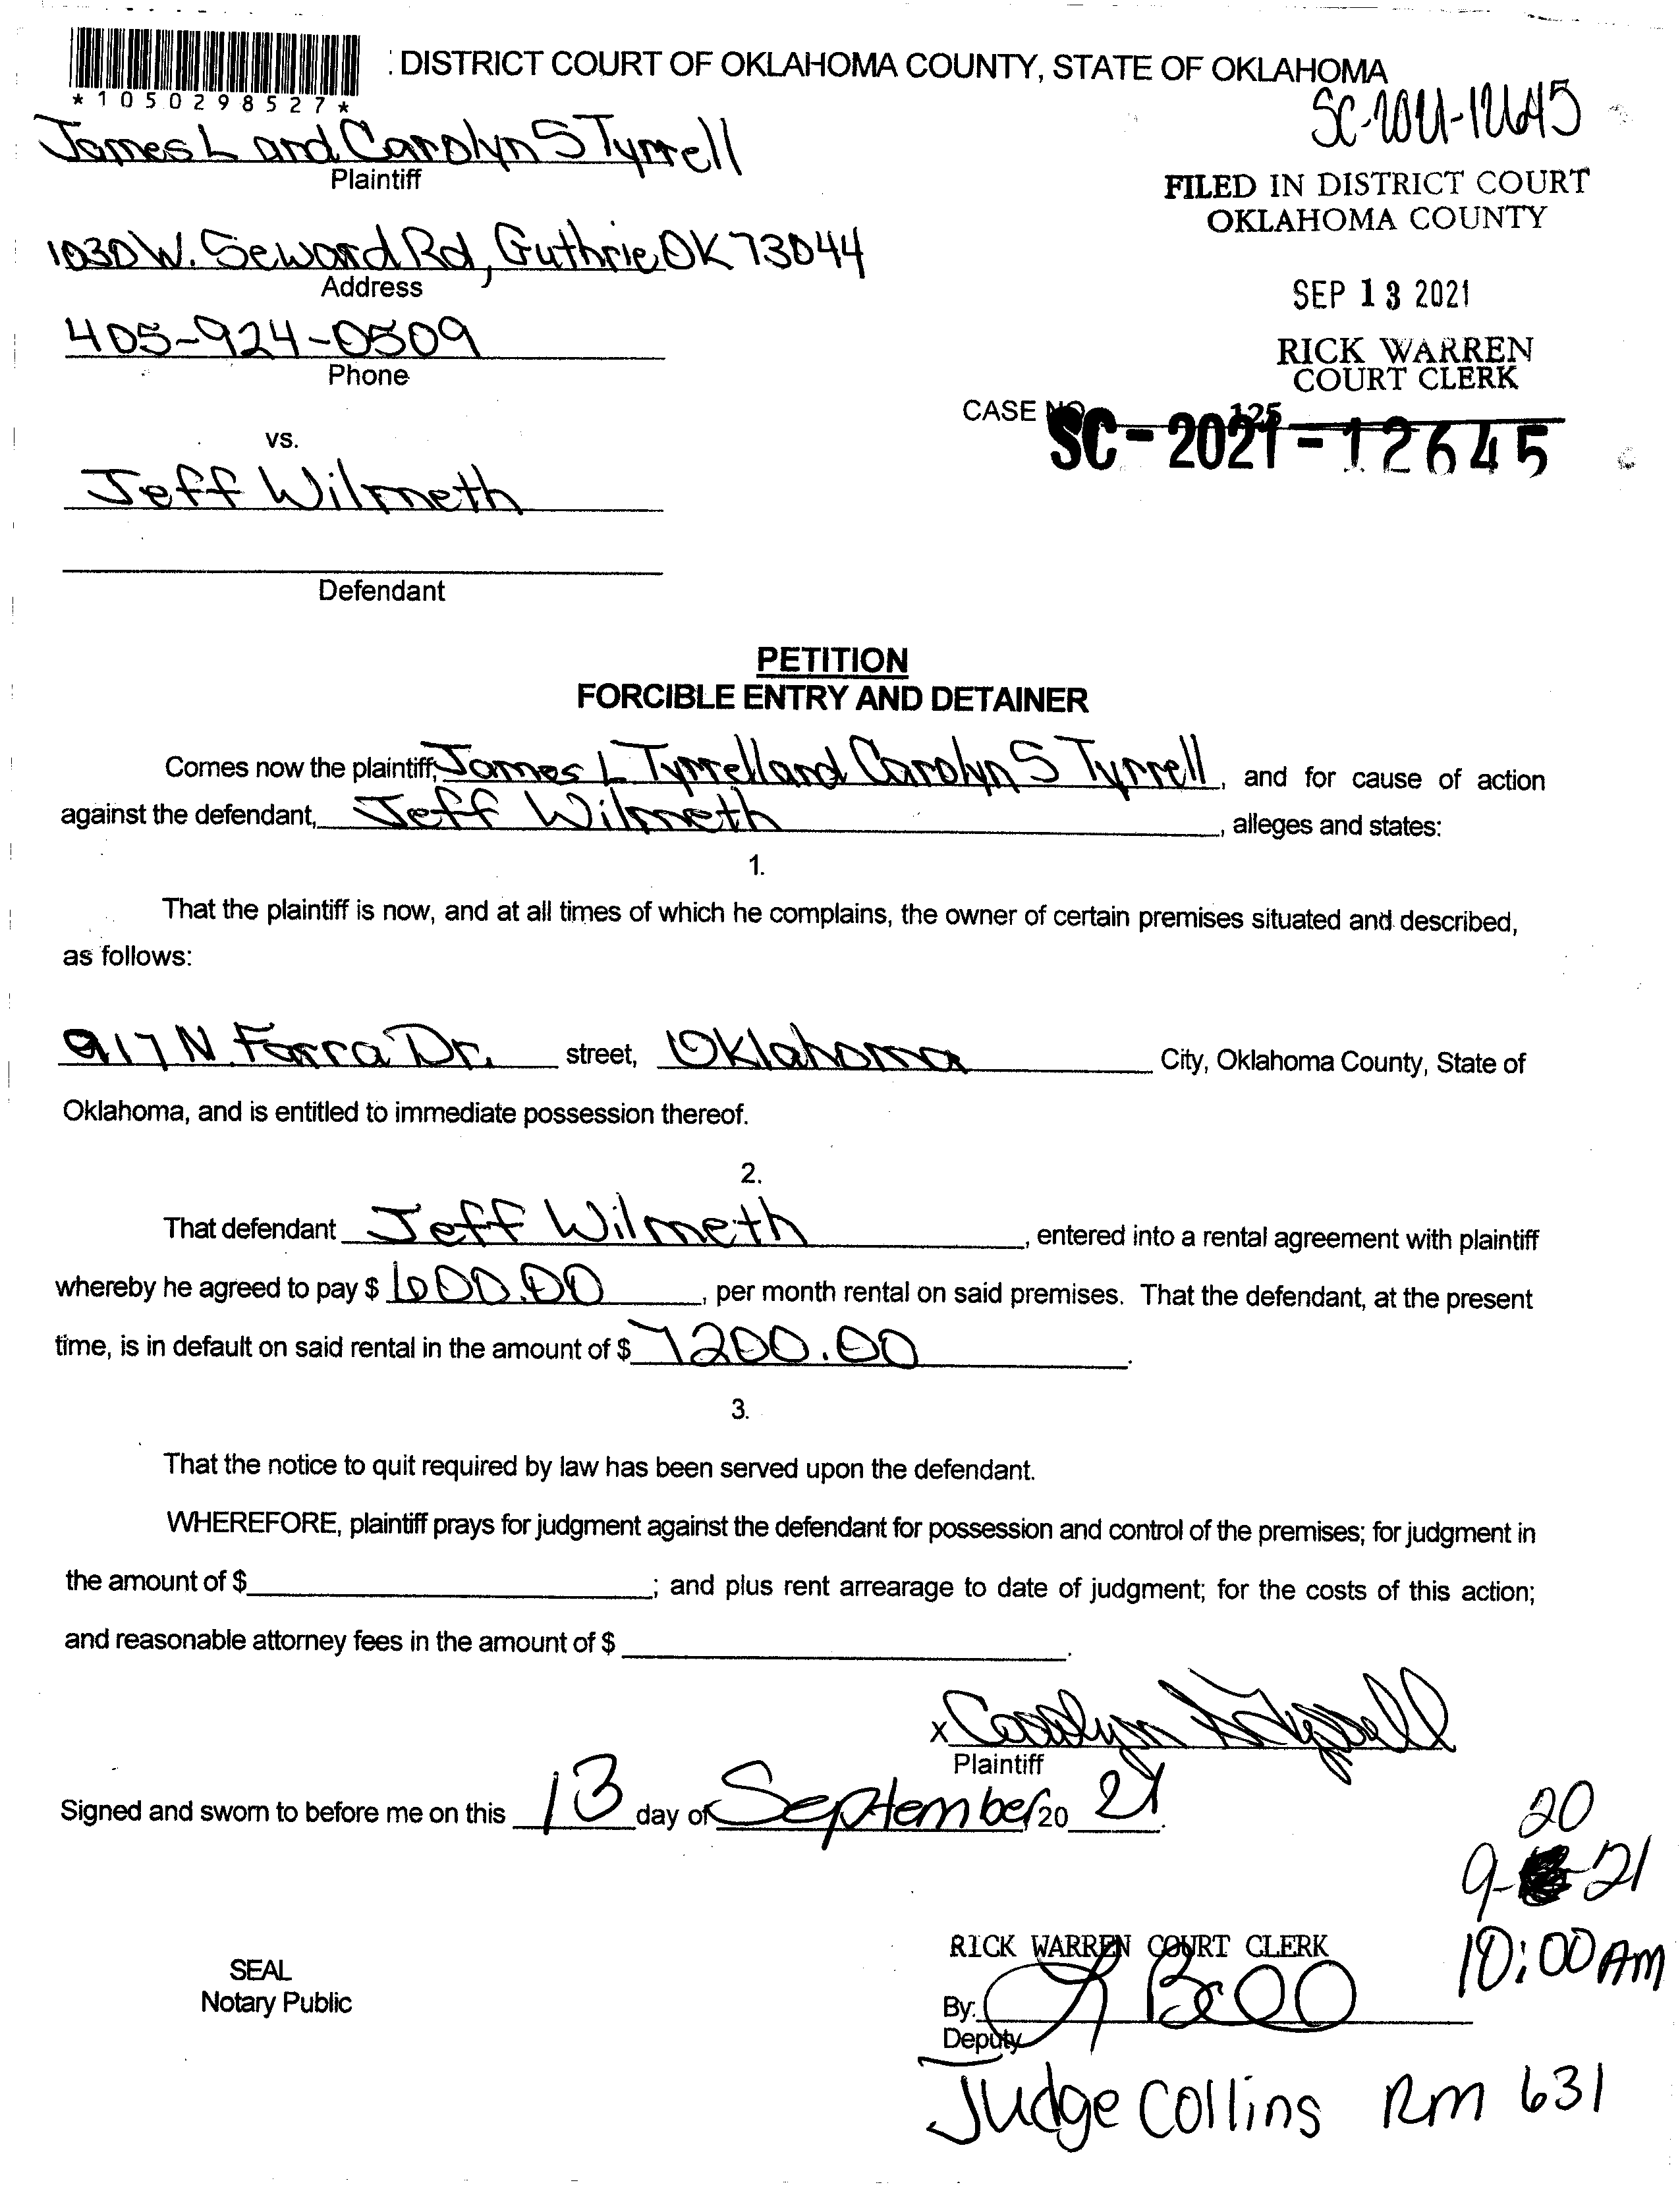 : DISTRICT COURT OF OKLAHOMA COUNTY, STATE OF OKLAHOMA
*1050298527*
SC-2021-12645
James L and Carolyn S Tyrrell
Plaintiff
FILED IN DISTRICT COURT
OKLAHOMA COUNTY
1030 W. Seward Rd, Guthrie OK 73044
Address
SEP 13 2021
405-924-0509
Phone
RICK WARREN
COURT CLERK
125
CASE NO.
SC-2021-12645
vs.
Jeff Wilmeth
Defendant
PETITION
FORCIBLE ENTRY AND DETAINER
Comes now the plaintiff, James L Tyrrell and Carolyn S Tyrrell, and for cause of action
against the defendant, Jeff Wilmeth, alleges and states:
1.
That the plaintiff is now, and at all times of which he complains, the owner of certain premises situated and described,
as follows:
917 N. Farra Dr. street, Oklahoma City, Oklahoma County, State of
Oklahoma, and is entitled to immediate possession thereof.
2.
That defendant Jeff Wilmeth, entered into a rental agreement with plaintiff
whereby he agreed to pay $ 600.00, per month rental on said premises. That the defendant, at the present
time, is in default on said rental in the amount of $ 7200.00.
3.
That the notice to quit required by law has been served upon the defendant.
WHEREFORE, plaintiff prays for judgment against the defendant for possession and control of the premises; for judgment in
the amount of $ ; and plus rent arrearage to date of judgment; for the costs of this action;
and reasonable attorney fees in the amount of $ .
X Carolyn S Tyrrell
Plaintiff
Signed and sworn to before me on this 13 day of September 20 21.
20
9- -21
10:00 AM
RICK WARREN COURT CLERK
SEAL
Notary Public
By:
Deputy
Judge Collins Rm 631